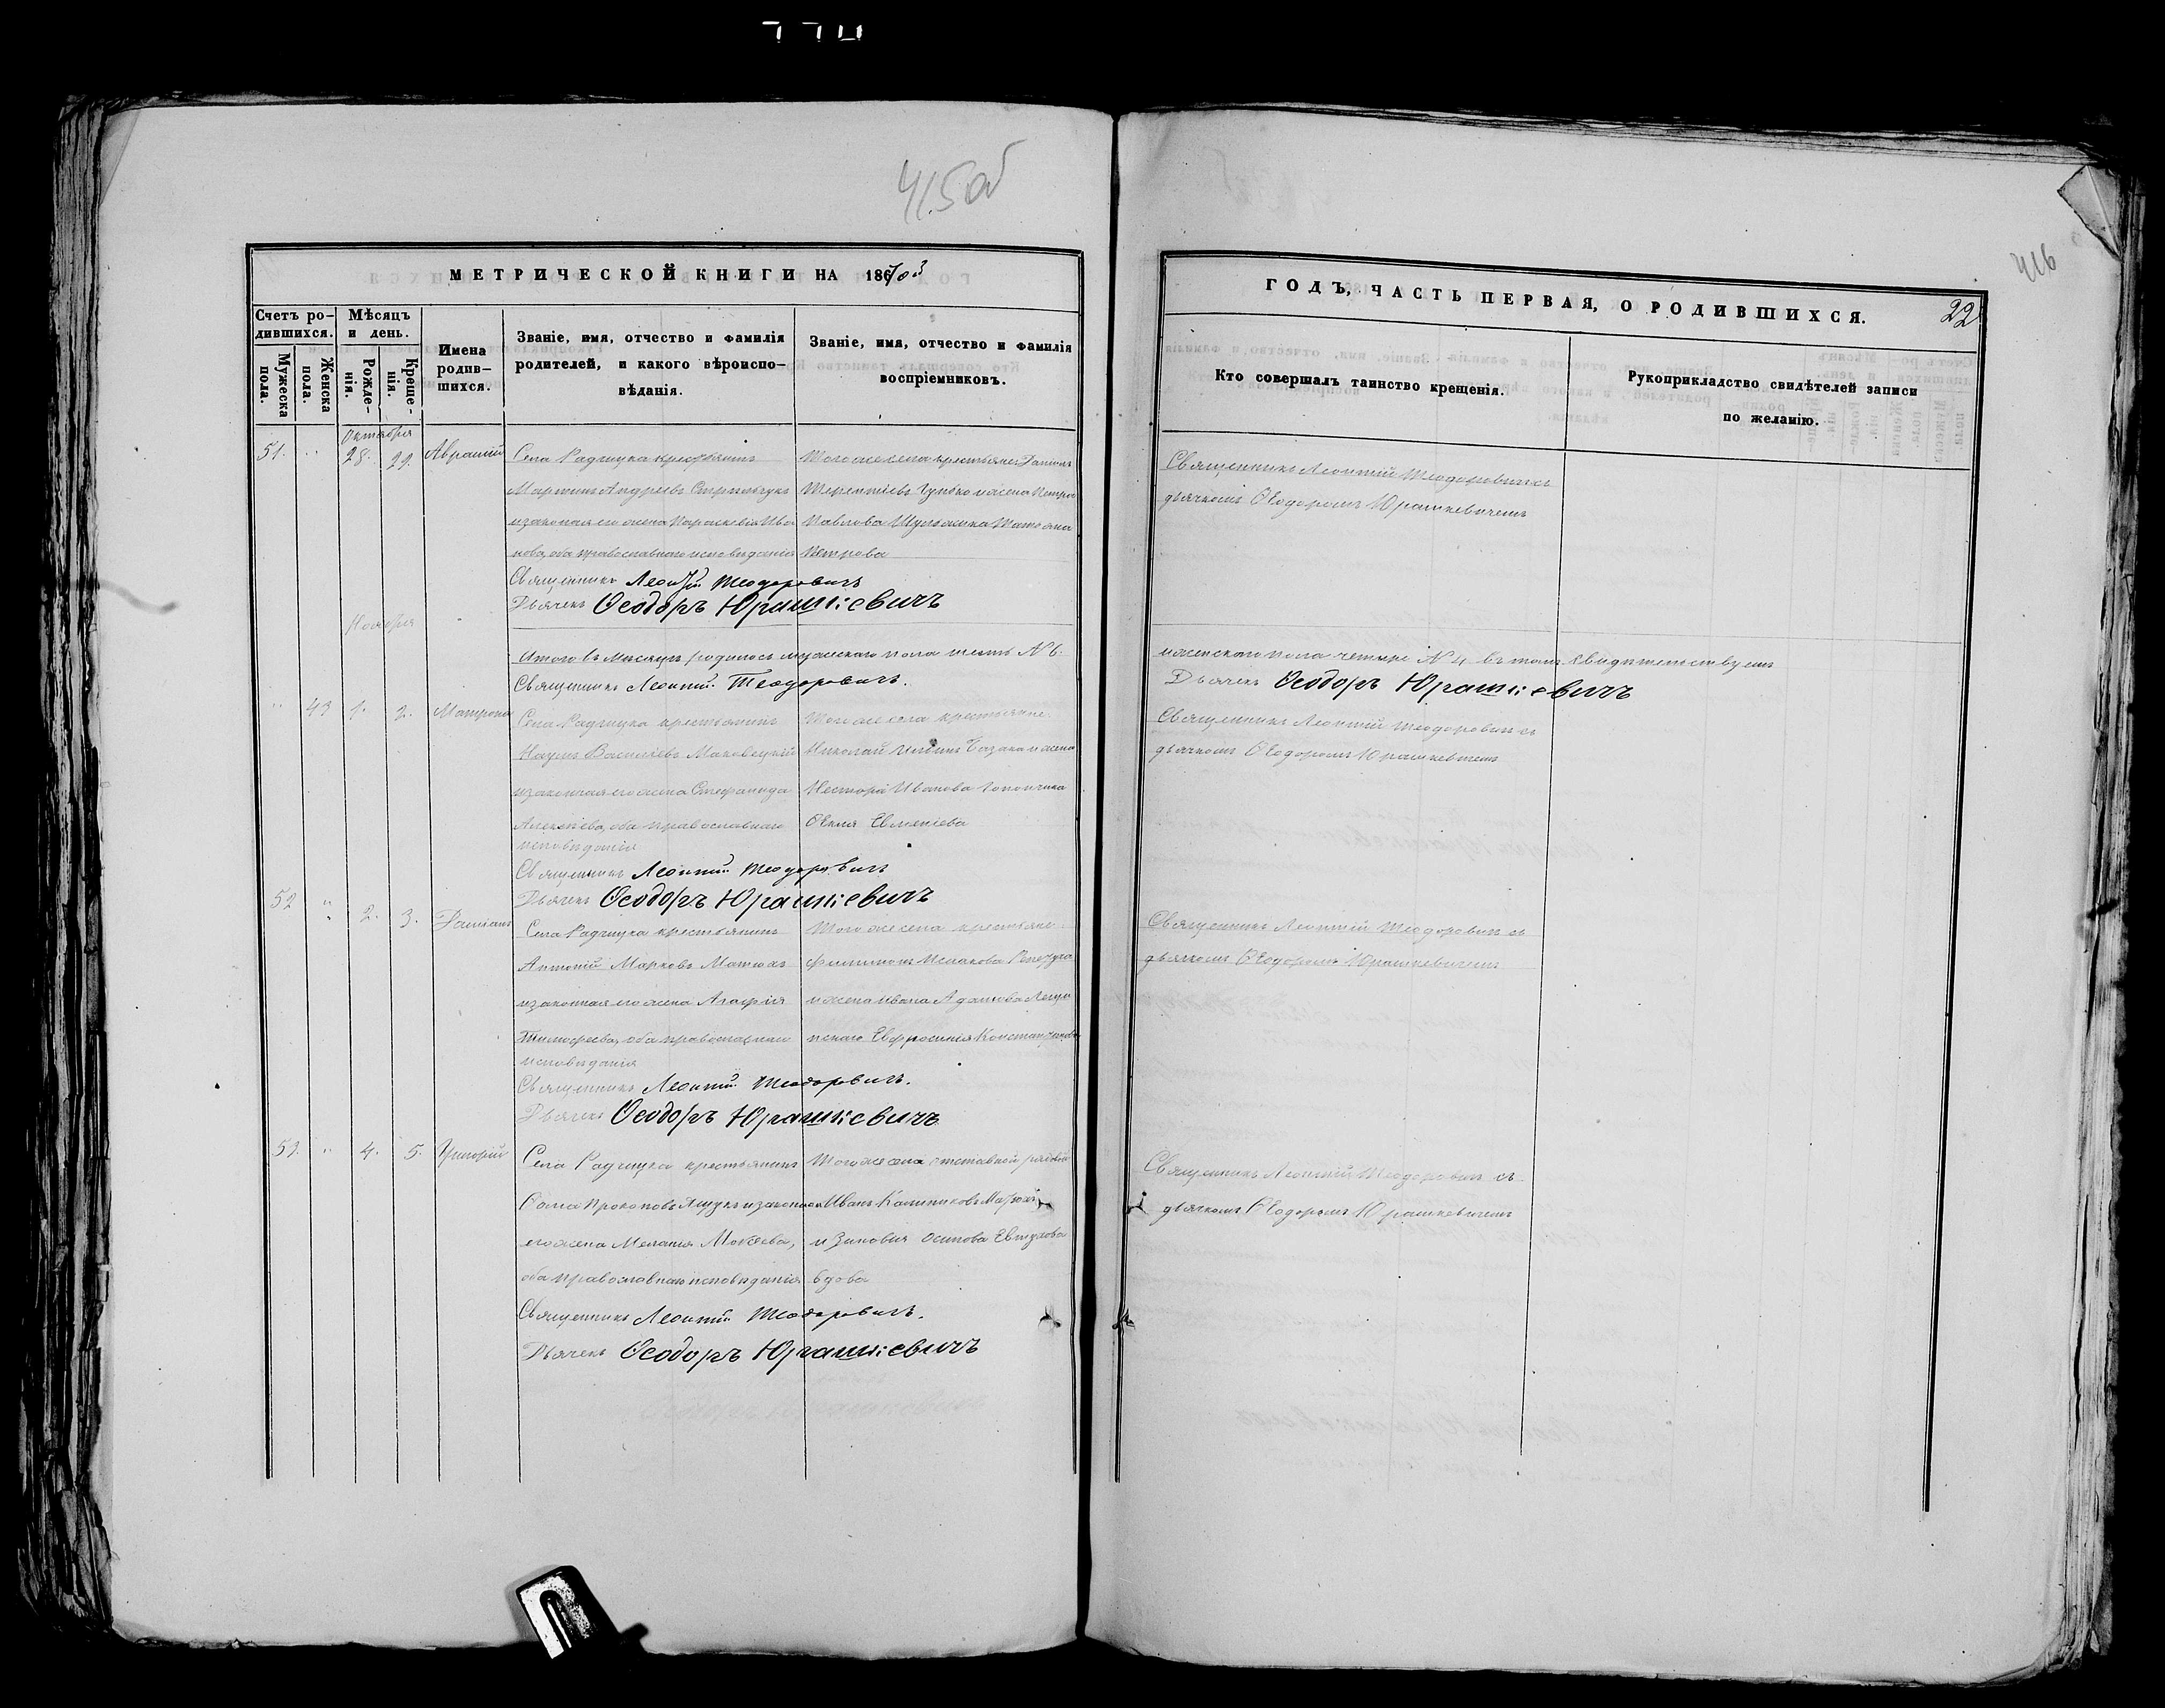 415об
МЕТРИЧЕСКОЙ КНИГИ НА 1870й
Счетъ ро-
дившихся.
Мужеска
пола.
Женска
пола.
Мѣсяцъ
и день.
Рожде-
нія.
Креще-
нія.
Имена
родив-
шихся.
Званіе, имя, отчество и фамилія
родителей, и какого вѣроиспо-
вѣданія.
Званіе, имя, отчество и фамилія
воспріемниковъ.
Октября
51. " 28. 29. Авраамій
Села Радчицка крестьянинъ
Мартинъ Андреевъ
и законная его жена Параскевія Ива
нова, оба православнаго исповѣданія
Того же села крестьяне Даніилъ
Терентіевъ и жена Петра
Павлова Татьяна
Петрова
Священникъ Леонтій Теодоровичъ
Дьячекъ Ѳеодоръ Юрашкевичъ
Ноября
Итого въ мѣсяцѣ родилось мужескаго пола шесть № 6.
Священникъ Леонтій Теодоровичъ.
" 43 1. 2. Матрона
Села Радчицка крестьянинъ
Наумъ Василіевъ Маковецкій
и законная его жена Стефанида
Алексіева, оба православнаго
исповѣданія
Того же села крестьяне
Николай Ильинъ и жена
Нестора Иванова
Ѳекла Евменіева
Священникъ Леонтій Теодоровичъ
Дьячекъ Ѳеодоръ Юрашкевичъ
52 " 2. 3. Даміанъ
Села Радчицка крестьянинъ
Антоній Марковъ Матюхъ
и законная его жена Агафія
Тимофеева, оба православнаго
исповѣданія
Того же села крестьяне
Филимонъ
и жена Ивана Адамова
Евфросинія Константинова
Священникъ Леонтій Теодоровичъ.
Дьячекъ Ѳеодоръ Юрашкевичъ
53. " 4. 5. Григорій
Села Радчицка крестьянинъ
Ѳома Прокоповъ и законная
его жена Меланія Мокеева,
оба православнаго исповѣданія
Того же села отставной рядовой
Иванъ Калинниковъ
и Зиновія Осипова
вдова
Священникъ Леонтій Теодоровичъ.
Дьячекъ Ѳеодоръ Юрашкевичъ
416
ГОДЪ, ЧАСТЬ ПЕРВАЯ, О РОДИВШИХСЯ.
22
Кто совершалъ таинство крещенія.
Рукоприкладство свидѣтелей записи
по желанію.
Священникъ Леонтій Теодоровичъ съ
дьячкомъ Ѳеодоромъ Юрашкевичемъ
и женскаго пола четыре № 4 въ томъ свидѣтельствуемъ
Дьячекъ Ѳеодоръ Юрашкевичъ
Священникъ Леонтій Теодоровичъ съ
дьячкомъ Ѳеодоромъ Юрашкевичемъ
Священникъ Леонтій Теодоровичъ съ
дьячкомъ Ѳеодоромъ Юрашкевичемъ
Священникъ Леонтій Теодоровичъ съ
дьячкомъ Ѳеодоромъ Юрашкевичемъ